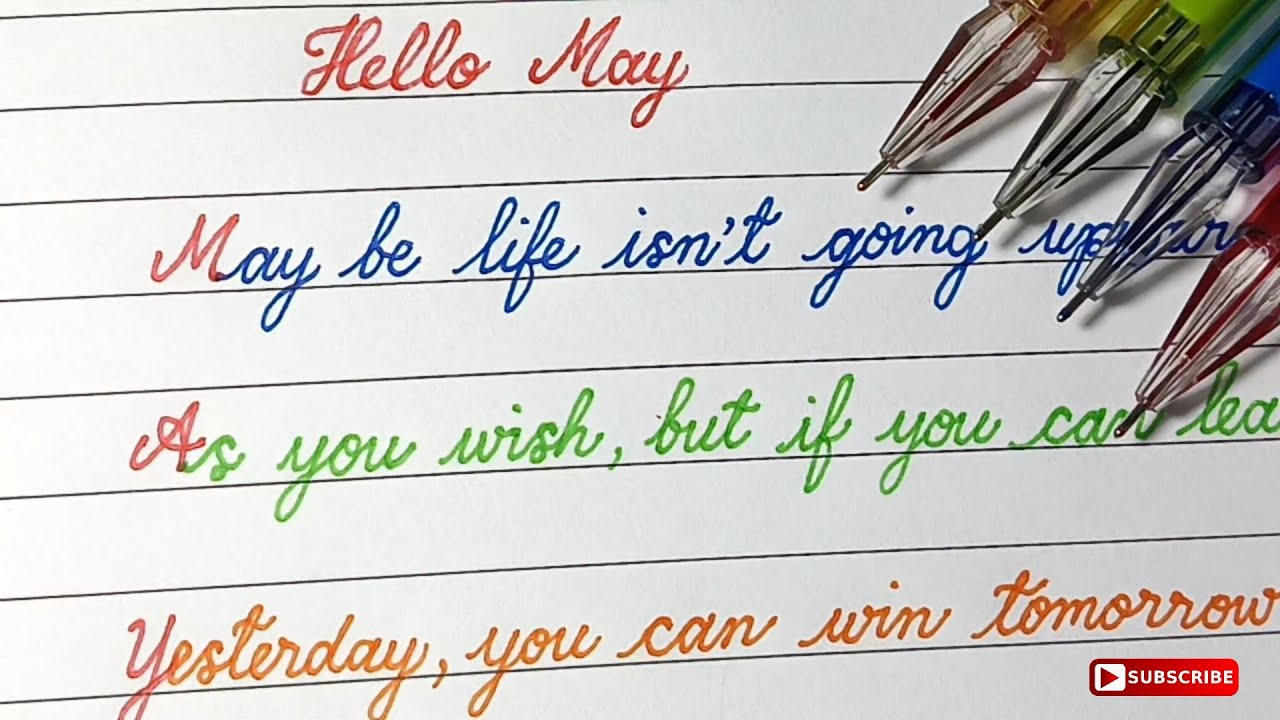 Hello May
May be life isn't going
As you wish, but if you can lea
Yesterday, you can win tomorrow
SUBSCRIBE